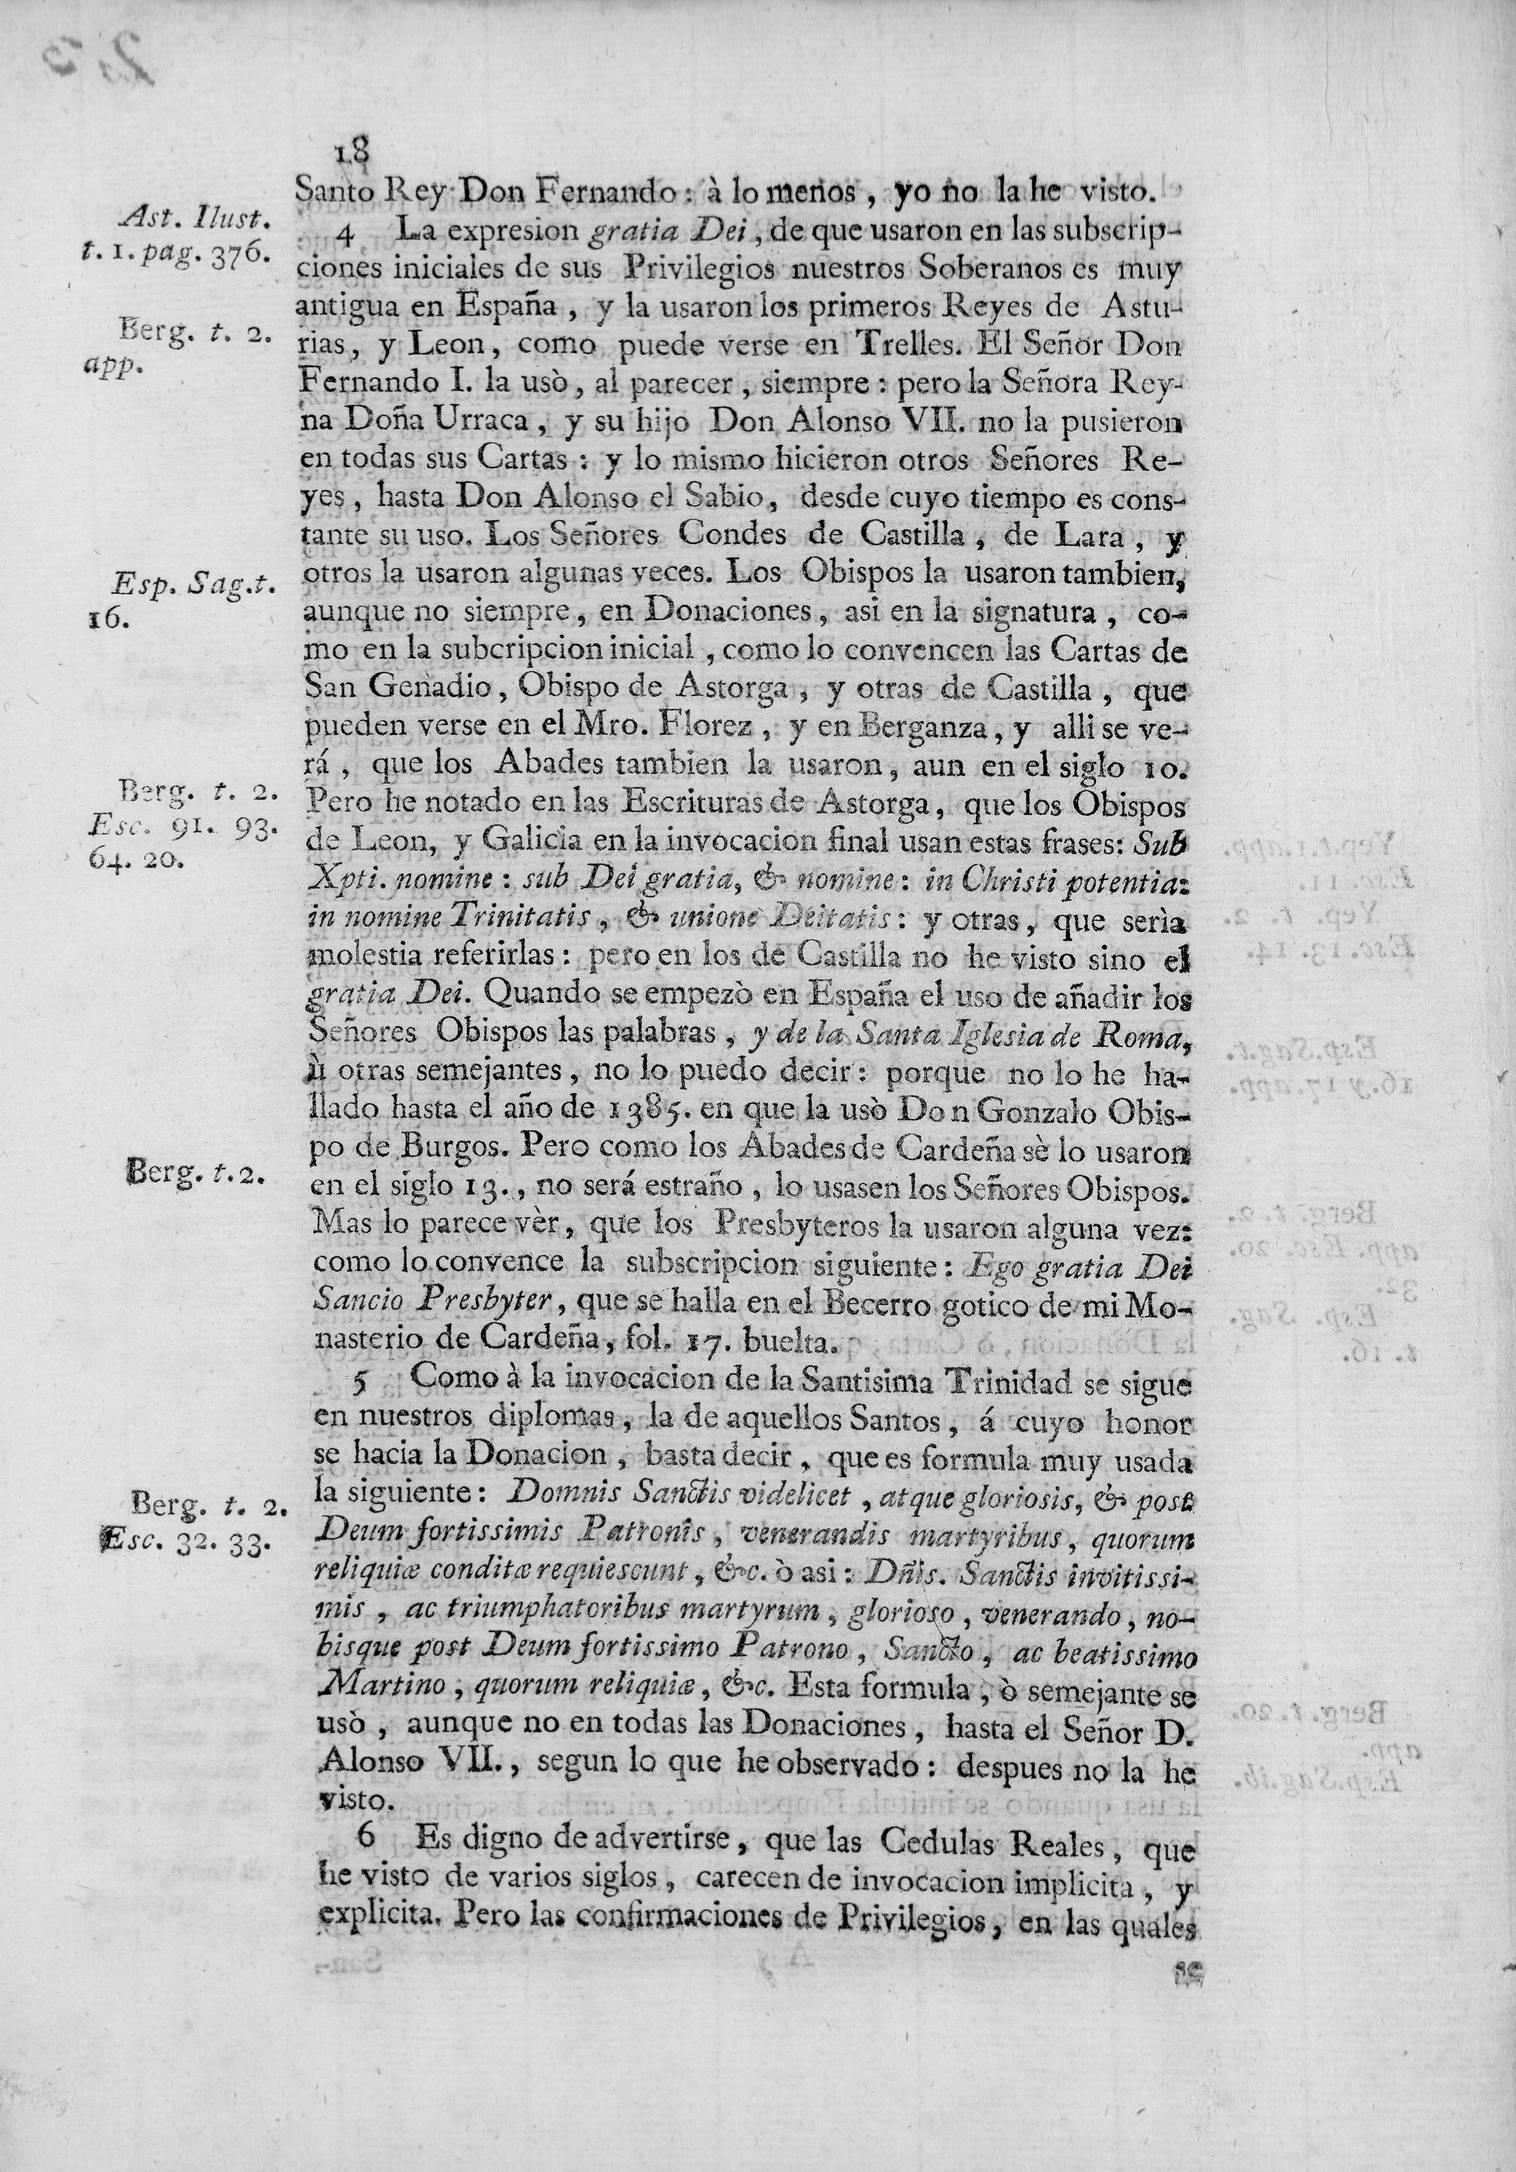 18
Santo Rey Don Fernando: à lo menos, yo no la he visto.
Ast. Ilust.
t. 1. pag. 376.
4 La expresion gratia Dei, de que usaron en las subscrip-
ciones iniciales de sus Privilegios nuestros Soberanos es muy
antigua en España, y la usaron los primeros Reyes de Astu-
Berg. t. 2.
app.
rias, y Leon, como puede verse en Trelles. El Señor Don
Fernando I. la usò, al parecer, siempre: pero la Señora Rey-
na Doña Urraca, y su hijo Don Alonso VII. no la pusieron
en todas sus Cartas: y lo mismo hicieron otros Señores Re-
yes, hasta Don Alonso el Sabio, desde cuyo tiempo es cons-
tante su uso. Los Señores Condes de Castilla, de Lara, y
Esp. Sag. t.
16.
otros la usaron algunas veces. Los Obispos la usaron tambien,
aunque no siempre, en Donaciones, asi en la signatura, co-
mo en la subcripcion inicial, como lo convencen las Cartas de
San Genadio, Obispo de Astorga, y otras de Castilla, que
pueden verse en el Mro. Florez, y en Berganza, y alli se ve-
rá, que los Abades tambien la usaron, aun en el siglo 10.
Berg. t. 2.
Esc. 91. 93.
64. 20.
Pero he notado en las Escrituras de Astorga, que los Obispos
de Leon, y Galicia en la invocacion final usan estas frases: Sub
Xpti. nomine: sub Dei gratia, & nomine: in Christi potentia:
in nomine Trinitatis, & unione Deitatis: y otras, que serìa
molestia referirlas: pero en los de Castilla no he visto sino el
gratia Dei. Quando se empezò en España el uso de añadir los
Señores Obispos las palabras, y de la Santa Iglesia de Roma,
ù otras semejantes, no lo puedo decir: porque no lo he ha-
llado hasta el año de 1385. en que la usò Don Gonzalo Obis-
po de Burgos. Pero como los Abades de Cardeña sè lo usaron
Berg. t. 2.
en el siglo 13., no será estraño, lo usasen los Señores Obispos.
Mas lo parece vèr, que los Presbyteros la usaron alguna vez:
como lo convence la subscripcion siguiente: Ego gratia Dei
Sancio Presbyter, que se halla en el Becerro gotico de mi Mo-
nasterio de Cardeña, fol. 17. buelta.
5 Como à la invocacion de la Santisima Trinidad se sigue
en nuestros diplomas, la de aquellos Santos, á cuyo honor
se hacia la Donacion, basta decir, que es formula muy usada
Berg. t. 2.
Esc. 32. 33.
la siguiente: Domnis Sanctis videlicet, atque gloriosis, & post
Deum fortissimis Patronis, venerandis martyribus, quorum
reliquiæ conditæ requiescunt, &c. ò asi: Dñis. Sanctis invitissi-
mis, ac triumphatoribus martyrum, glorioso, venerando, no-
bisque post Deum fortissimo Patrono, Sancto, ac beatissimo
Martino, quorum reliquiæ, &c. Esta formula, ò semejante se
usò, aunque no en todas las Donaciones, hasta el Señor D.
Alonso VII., segun lo que he observado: despues no la he
visto.
6 Es digno de advertirse, que las Cedulas Reales, que
he visto de varios siglos, carecen de invocacion implicita, y
explicita. Pero las confirmaciones de Privilegios, en las quales
se